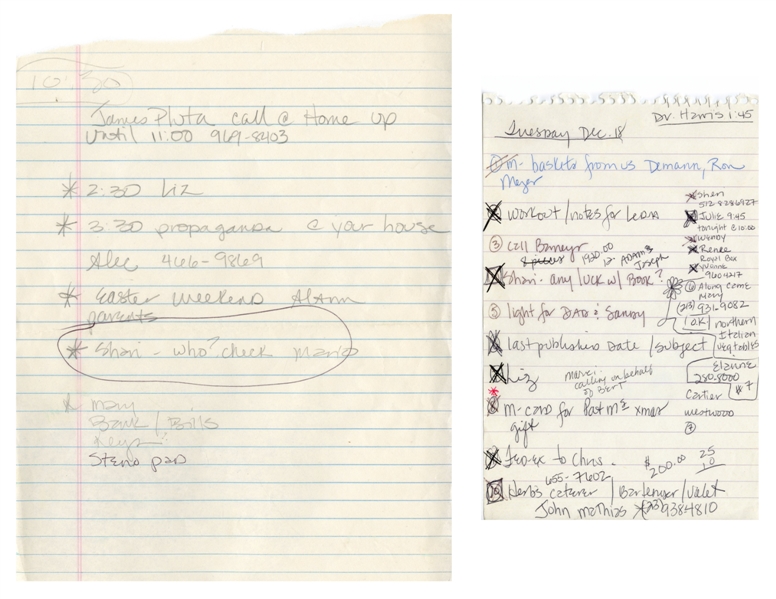 10:30
James Pluta call @ Home up
until 11:00 969-8403
* 2:30 Liz
* 3:30 propaganda @ your house
Alec 466-9869
* Easter weekend
parents
* Shari - who? check Mario
* Mary
Bank / Bills
Keys
Steno pad
Dr. Harris 1:45
Tuesday Dec. 18
① m- baskets from us Demann, Ron
Meyer
workout / notes for Leon
③ call
1920.00
Joseph
Shari - any luck w/ Book?
⑤ light for DAD & Sandy
last publishers Date / subject
Liz
calling on behalf
of BERT
m- card for Pat Mc xmas
gift
Fed-ex to Chris.
$200.00
25
10
655-7602
Herb's caterer / Bartender / valet
John Mathias (213) 938 4810
Sheri
512 828 6927
Julie 9:45
tonight @ 10:00
Wendy
Renee
Royal Box
960 4217
Along Came
Mary
(213) 931-9082
northern
Italian
vegtables
Elanne
280.8000
#7
Cartier
westwood